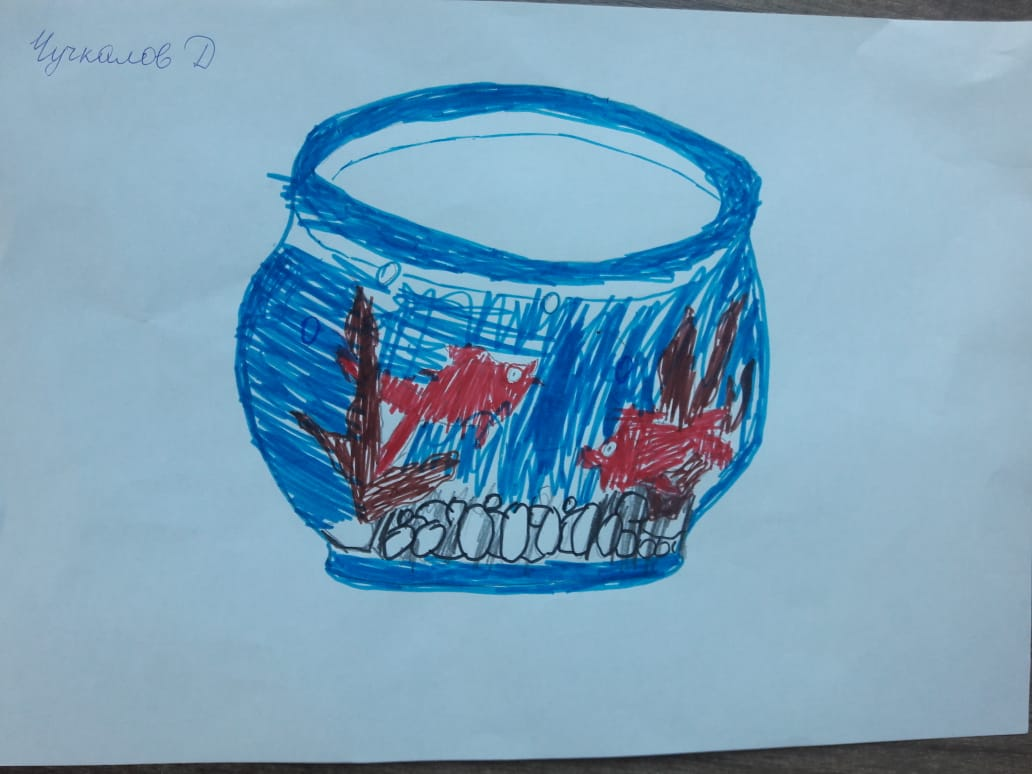 Чучкалов Д